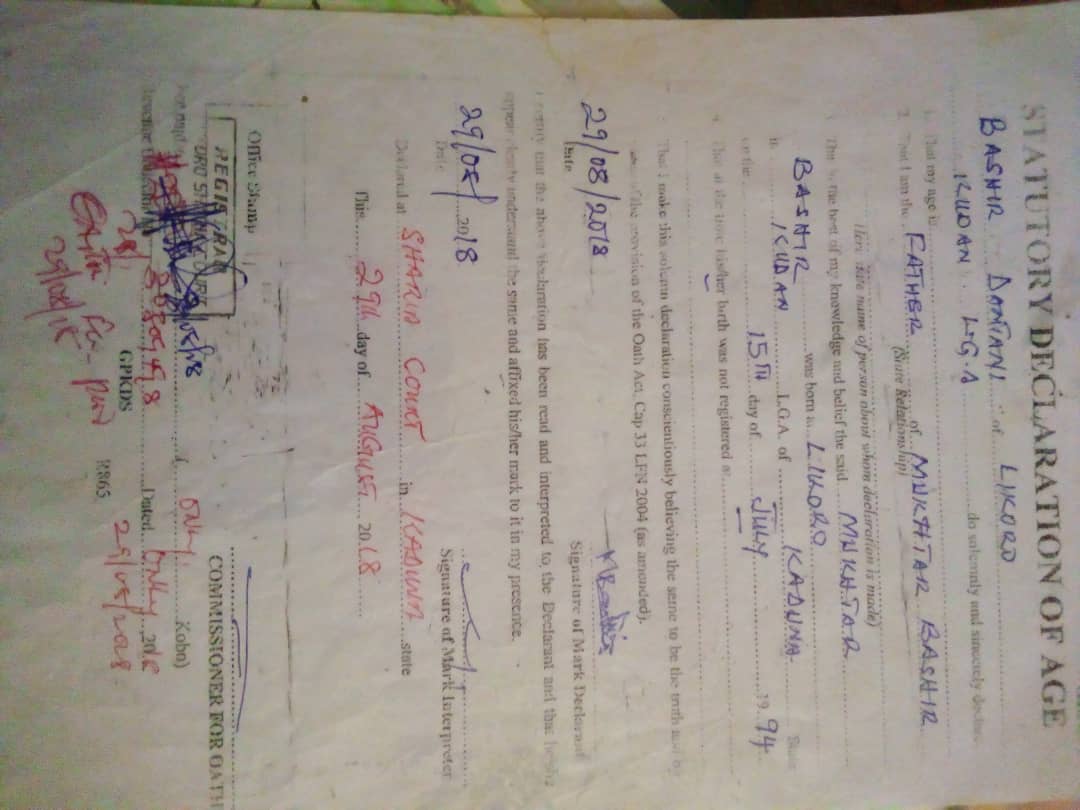 STATUTORY DECLARATION OF AGE
BASHIR DANTANI of LIKORO
KUDAN L.G.A do solemnly and sincerely declare
1. That my age is
2. That I am the FATHER of MUKHTAR BASHIR
(State Relationship)
(Here state name of person about whom declaration is made)
That to the best of my knowledge and belief the said MUKHTAR
BASHIR was born in LIKORO
in KUDAN L.G.A. of KADUNA State
on the 15TH day of JULY 1994
4. That at the time his/her birth was not registered
That I make this solemn declaration conscientiously believing the same to be the truth and by
of the provision of the Oath Act, Cap 33 LFN 2004 (as amended).
29/08/2018
Date Signature of Mark Declarant
I certify that the above Declaration has been read and interpreted to, the Declarant and that he/she
appear clearly understand the same and affixed his/her mark to it in my presence.
29/08/2018
Date Signature of Mark Interpreter
Declared at SHARIA COURT in KADUNA state
This 29th day of AUGUST 2018
Office Stamp
REGISTRAR
COMMISSIONER FOR OATH
ONLY Kobo)
Dated 2018
GPKDS R865
29/08/2018